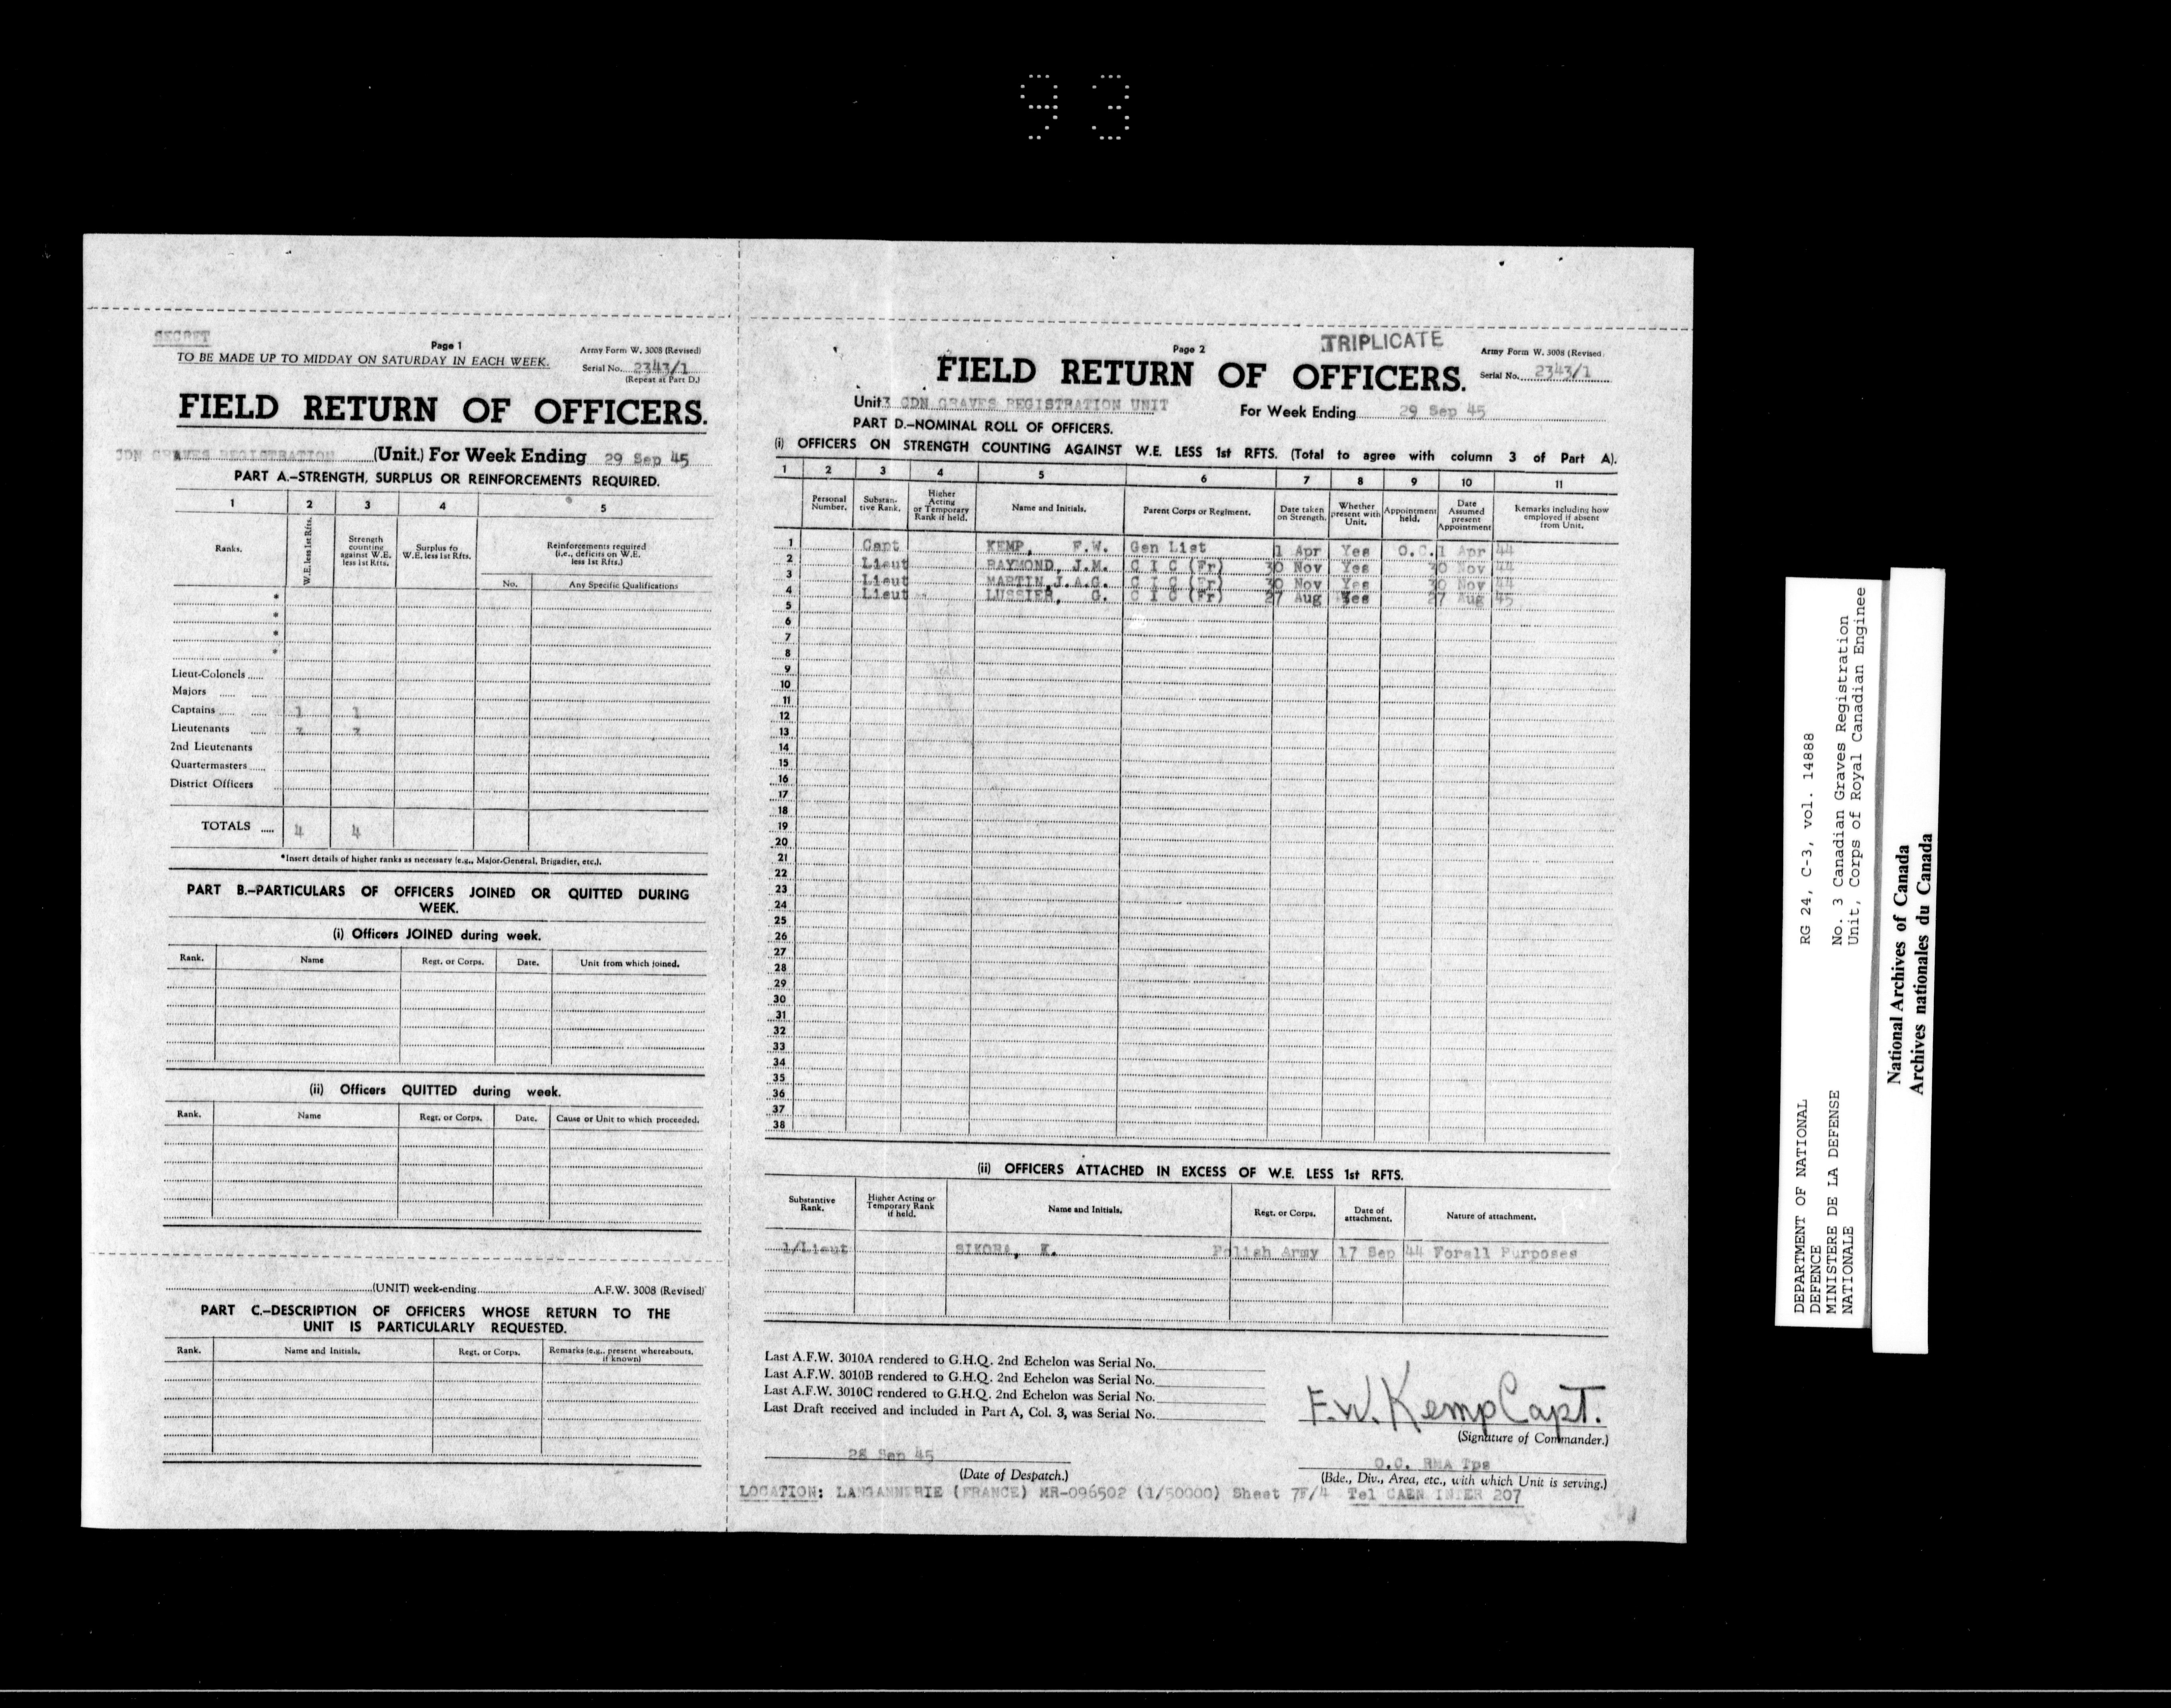 93
SECRET
Page 1
TO BE MADE UP TO MIDDAY ON SATURDAY IN EACH WEEK.
Army Form W. 3008 (Revised)
Serial No. 2343/1
(Repeat at Part D.)
FIELD RETURN OF OFFICERS.
CDN GRAVES REGISTRATION (Unit.) For Week Ending 29 Sep 45
PART A.—STRENGTH, SURPLUS OR REINFORCEMENTS REQUIRED.
1 2 3 4 5
Ranks. W.E. less 1st Rfts. Strength counting against W.E. less 1st Rfts. Surplus to W.E. less 1st Rfts. Reinforcements required (i.e., deficits on W.E. less 1st Rfts.)
No. Any Specific Qualifications
*
*
*
*
Lieut-Colonels
Majors
Captains 1 1
Lieutenants 3 3
2nd Lieutenants
Quartermasters
District Officers
TOTALS 4 4
*Insert details of higher ranks as necessary (e.g., Major-General, Brigadier, etc.).
PART B.—PARTICULARS OF OFFICERS JOINED OR QUITTED DURING
WEEK.
(i) Officers JOINED during week.
Rank. Name Regt. or Corps. Date. Unit from which joined.
(ii) Officers QUITTED during week.
Rank. Name Regt. or Corps. Date. Cause or Unit to which proceeded.
(UNIT) week-ending A.F.W. 3008 (Revised)
PART C.—DESCRIPTION OF OFFICERS WHOSE RETURN TO THE
UNIT IS PARTICULARLY REQUESTED.
Rank. Name and Initials. Regt. or Corps. Remarks (e.g., present whereabouts, if known)
Page 2
TRIPLICATE
Army Form W. 3008 (Revised
FIELD RETURN OF OFFICERS.
Serial No. 2343/1
Unit 3 CDN GRAVES REGISTRATION UNIT For Week Ending 29 Sep 45
PART D.—NOMINAL ROLL OF OFFICERS.
(i) OFFICERS ON STRENGTH COUNTING AGAINST W.E. LESS 1st RFTS. (Total to agree with column 3 of Part A).
1 2 3 4 5 6 7 8 9 10 11
Personal Number. Substantive Rank. Higher Acting or Temporary Rank if held. Name and Initials. Parent Corps or Regiment. Date taken on Strength. Whether present with Unit. Appointment held. Date Assumed present Appointment Remarks including how employed if absent from Unit.
1 Capt KEMP, F.W. Gen List 1 Apr Yes O.C. 1 Apr 44
2 Lieut RAYMOND, J.M. C I C (Fr) 30 Nov Yes 30 Nov 44
3 Lieut MARTIN, J.A.G. C I C (Fr) 30 Nov Yes 30 Nov 44
4 Lieut LUSSIER, G. C I C (Fr) 27 Aug Yes 27 Aug 45
5
6
7
8
9
10
11
12
13
14
15
16
17
18
19
20
21
22
23
24
25
26
27
28
29
30
31
32
33
34
35
36
37
38
(ii) OFFICERS ATTACHED IN EXCESS OF W.E. LESS 1st RFTS.
Substantive Rank. Higher Acting or Temporary Rank if held. Name and Initials. Regt. or Corps. Date of attachment. Nature of attachment.
1/Lieut SIKORA, K. Polish Army 17 Sep 44 Forall Purposes
Last A.F.W. 3010A rendered to G.H.Q. 2nd Echelon was Serial No.
Last A.F.W. 3010B rendered to G.H.Q. 2nd Echelon was Serial No.
Last A.F.W. 3010C rendered to G.H.Q. 2nd Echelon was Serial No.
Last Draft received and included in Part A, Col. 3, was Serial No.
F.W. Kemp Capt.
(Signature of Commander.)
28 Sep 45
(Date of Despatch.)
O.C. RHA Tps
(Bde., Div., Area, etc., with which Unit is serving.)
LOCATION: LANGANNERIE (FRANCE) MR-096502 (1/50000) Sheet 7F/4 Tel CAEN INTER 207
DEPARTMENT OF NATIONAL
DEFENCE
MINISTERE DE LA DEFENSE
NATIONALE
RG 24, C-3, vol. 14888
No. 3 Canadian Graves Registration
Unit, Corps of Royal Canadian Enginee
National Archives of Canada
Archives nationales du Canada